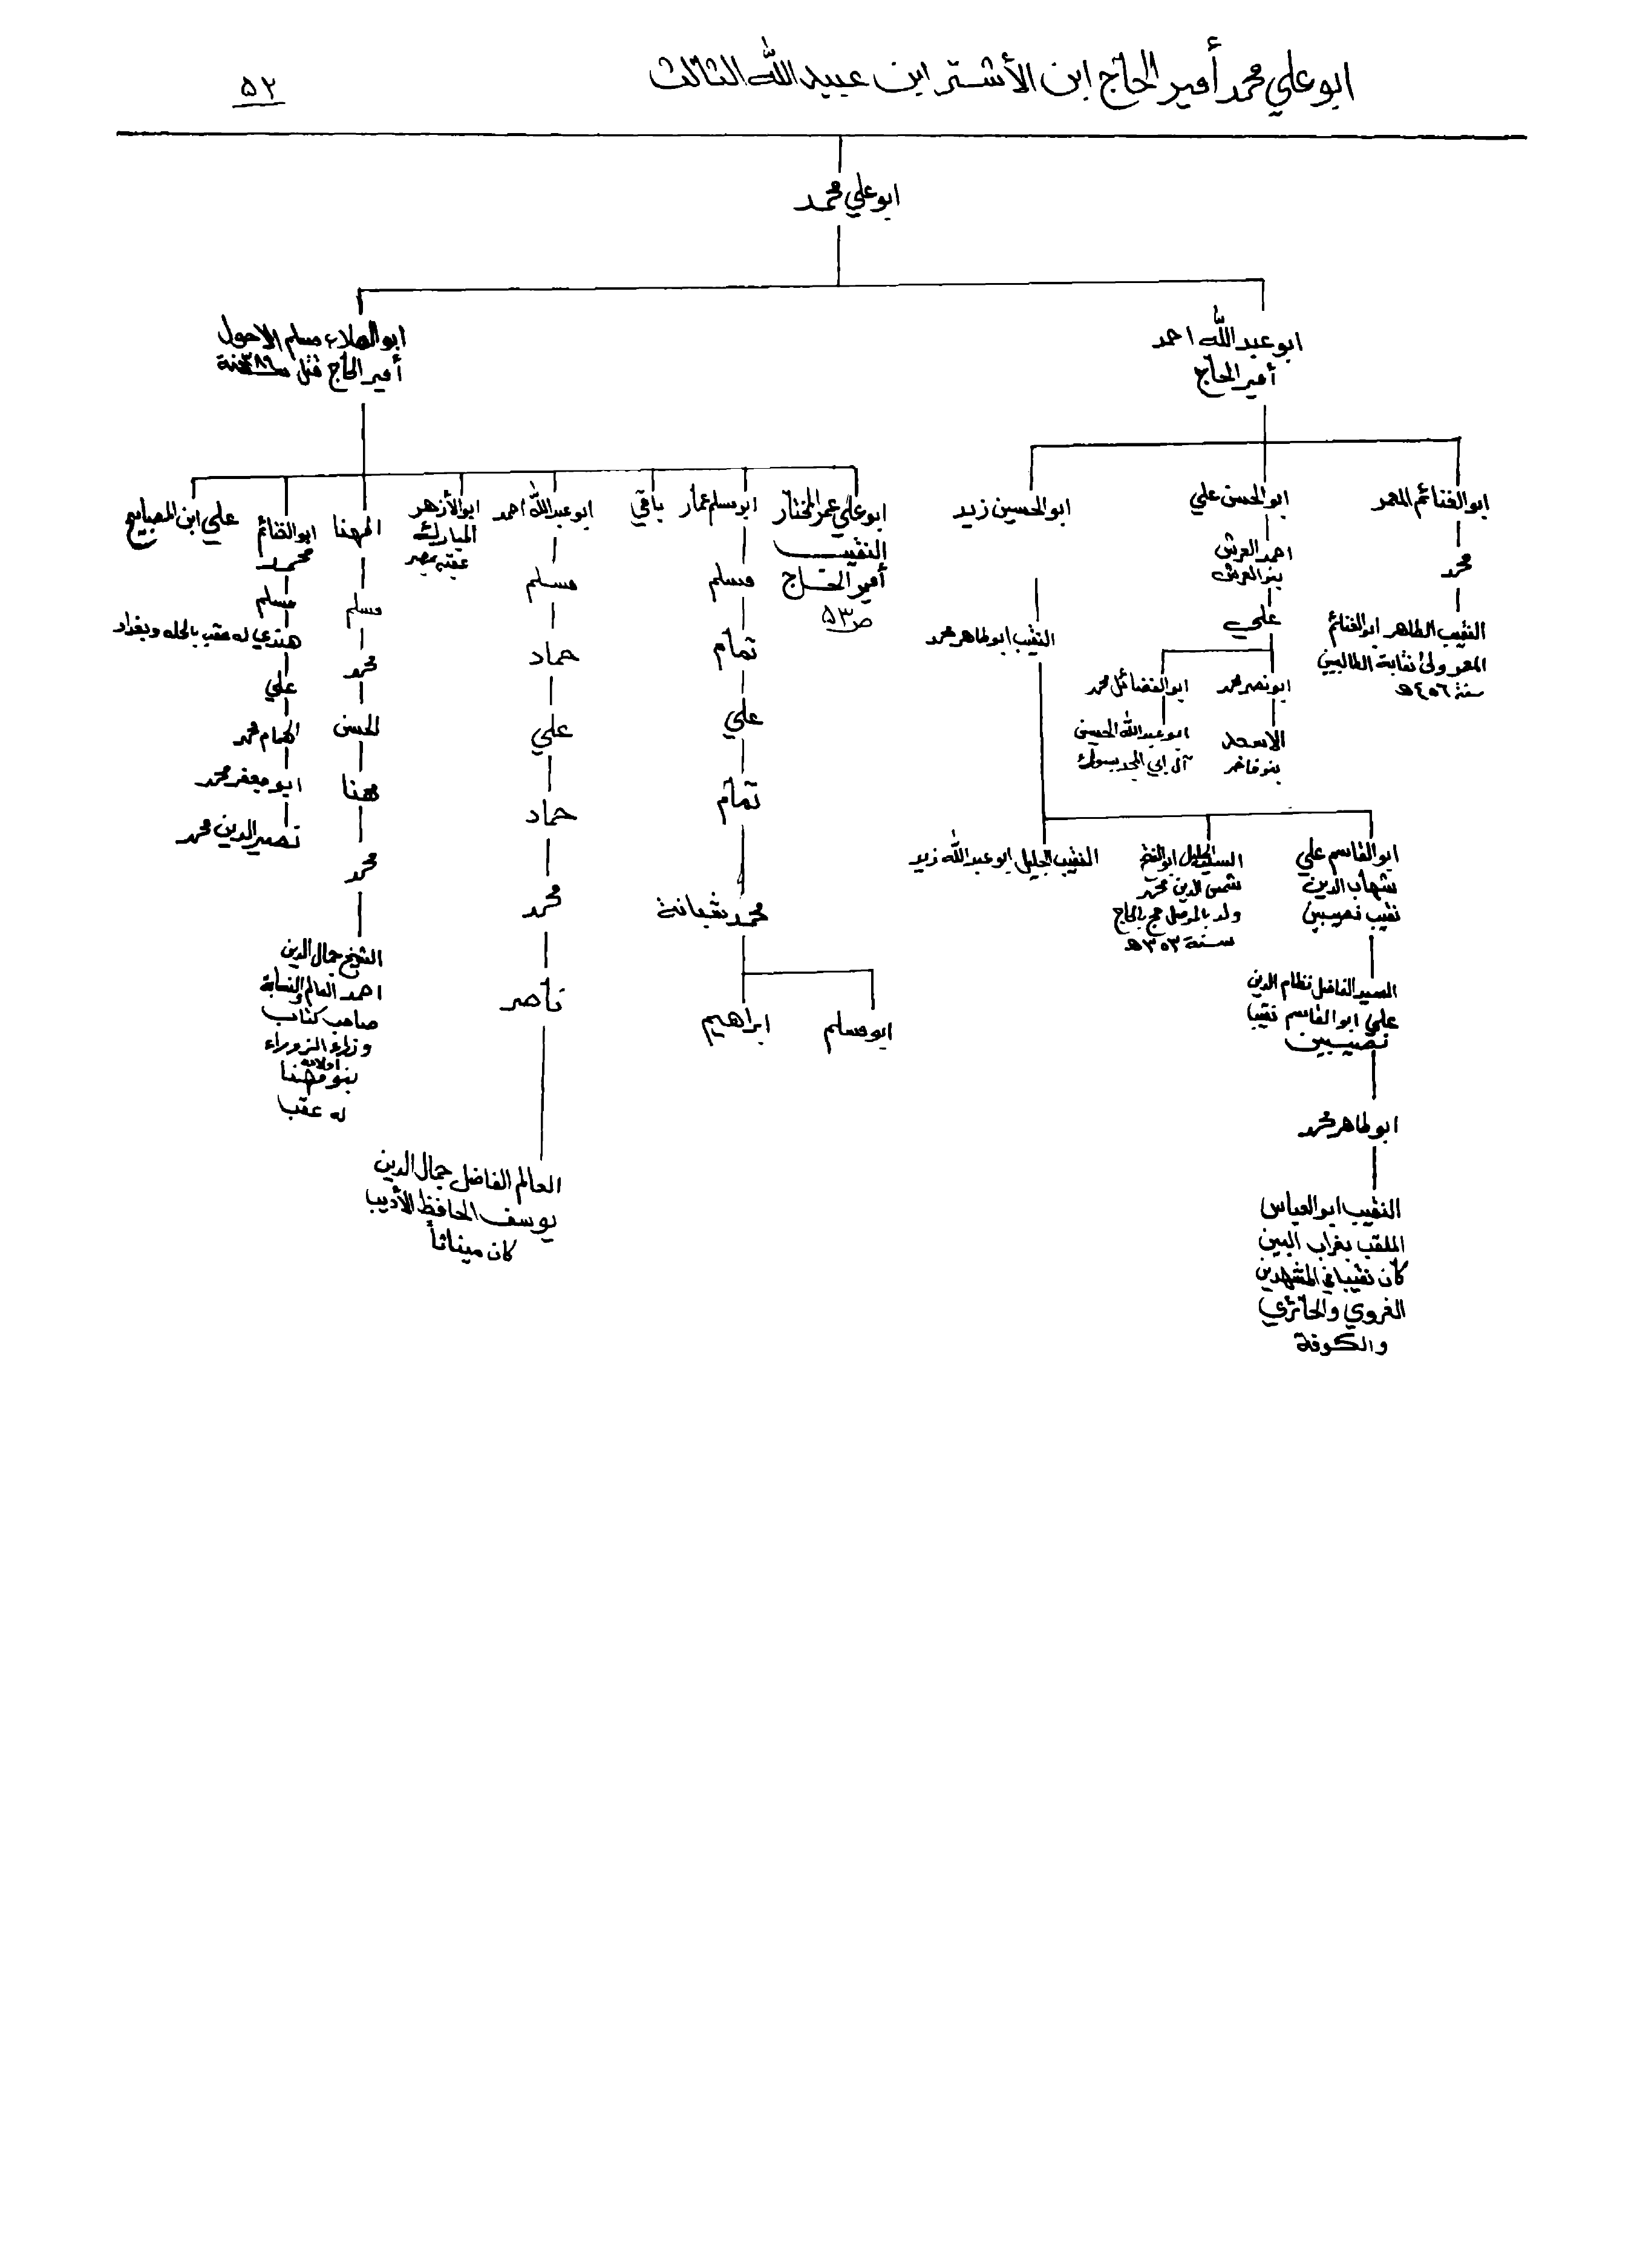 ابو علي محمد أمير الحاج ابن الأشتر ابن عبيد الله الثالث
٥٢
ابو علي محمد
ابو عبد الله احمد
أمير الحاج
ابو العلاء مسلم الاحول
أمير الحاج قتل سنة ٣٨٩
ابو الغنائم المعمر
محمد
النقيب الطاهر ابو الغنائم
المعمر ولي نقابة الطالبيين
سنة ٤٥٦ هـ
ابو الحسن علي
احمد العرش
بنو العرش
علي
ابو نصر محمد
الاسعد
بنو فاخر
ابو الفضائل محمد
ابو عبد الله الحسين
آل ابي المجد بسوراء
ابو الحسين زيد
النقيب ابو طاهر محمد
ابو القاسم علي
شهاب الدين
نقيب نصيبين
السيد الفاضل نظام الدين
علي ابو القاسم نقيبا
نصيبين
ابو طاهر محمد
النقيب ابو العباس
الملقب بغراب البين
كان نقيبا في المشهدين
الغروي والحائري
والكوفة
السيد الجليل ابو الفتح
شمس الدين محمد
ولد بالموصل حج بالحاج
سنة ٣٥٣ هـ
النقيب الجليل ابو عبد الله زيد
ابو علي عمر المختار
النقيب
أمير الحاج
ص ٥٣
ابو مسلم عمار
مسلم
تمام
علي
تمام
محمد شبانة
ابو مسلم
ابراهيم
باقي
ابو عبد الله احمد
مسلم
حماد
علي
حماد
محمد
ناصر
العالم الفاضل جمال الدين
يوسف الحافظ الأديب
كان ميناثاً
ابو الأزهر
المبارك
عقبه بمصر
المهنا
مسلم
محمد
الحسن
مهنا
محمد
الشيخ جمال الدين
احمد العالم النسابة
صاحب كتاب
وزراء الزوراء
اولاده
بنو مهنا
له عقب
ابو الغنائم
محمد
مسلم
هندي له عقب بالحله وبغداد
علي
الهمام محمد
ابو جعفر محمد
نصير الدين محمد
علي ابن المصابيح